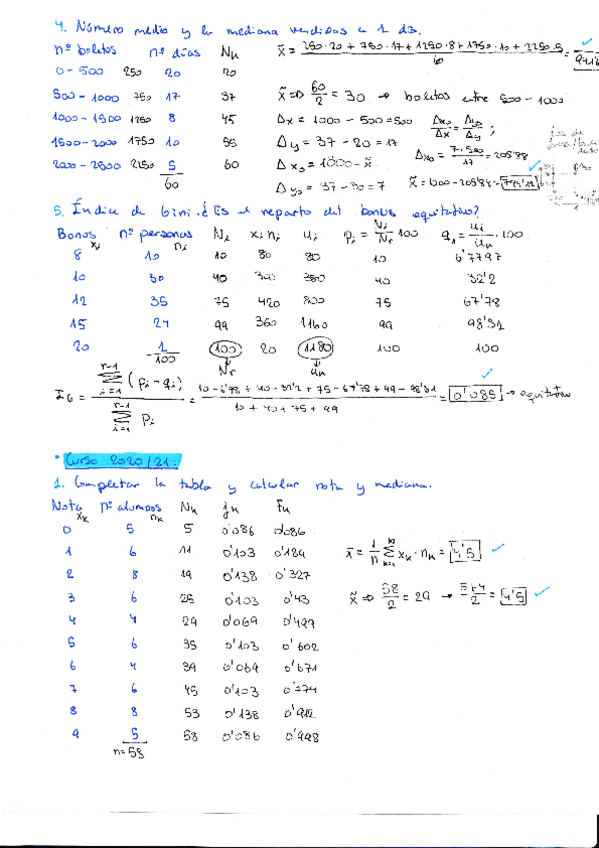 4. Número medio y la mediana vendidos a 1 día.
nº boletos nº días Nk x̄ = (250·20 + 750·17 + 1250·8 + 1750·10 + 2250·5) / 60 =
0 - 500 250 20 20
500 - 1000 750 17 37 x̃ => 60/2 = 30 → boletos entre 500 - 1000
1000 - 1500 1250 8 45 Δx = 1000 - 500 = 500 Δx₀/Δx = Δy₀/Δy ;
1500 - 2000 1750 10 55 Δy = 37 - 20 = 17 Δx₀ = 7·500/17 = 205'88
2000 - 2500 2250 5 60 Δx₀ = 1000 - x̃
60 Δy₀ = 37 - 30 = 7 x̃ = 1000 - 205'88 =
5. Índice de Gini. ¿Es el reparto del bonus equitativo?
Bonus xi nº personas ni Ni xi ni ui pi = Ni/Nr 100 qi = ui/un · 100
8 10 10 80 80 10 6'7797
10 30 40 300 380 40 32'2
12 35 75 420 800 75 67'78
15 24 99 360 1160 99 98'31
20 1 100 20 1180 100 100
100 Nr un
IG = Σ r-1 i=1 (pi - qi) / Σ r-1 i=1 pi = (10 - 6'78 + 40 - 32'2 + 75 - 67'78 + 99 - 98'31) / (10 + 40 + 75 + 99) = 0'085 → equitativo
• Curso 2020/21:
1. Completar la tabla y calcular nota y mediana.
Nota xk nº alumnos nk Nk fk Fk
0 5 5 0'086 0'086
1 6 11 0'103 0'189 x̄ = 1/n Σ xk · nk = 4'5
2 8 19 0'138 0'327
3 6 25 0'103 0'43 x̃ => 58/2 = 29 → 5+4/2 = 4'5
4 4 29 0'069 0'499
5 6 35 0'103 0'602
6 4 39 0'069 0'671
7 6 45 0'103 0'774
8 8 53 0'138 0'912
9 5 58 0'086 0'998
n = 58